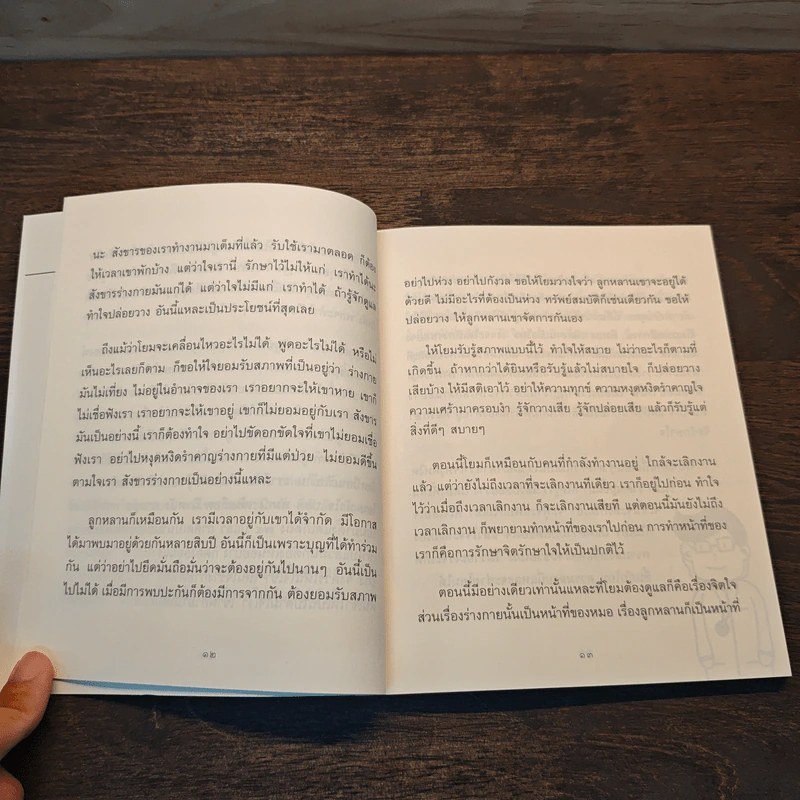 นะ สังขารของเราทำงานมาเต็มที่แล้ว รับใช้เรามาตลอด ก็ต้อง
ให้เวลาเขาพักบ้าง แต่ว่าใจเรานี่ รักษาไว้ไม่ให้แก่ เราทำได้นะ
สังขารร่างกายมันแก่ได้ แต่ว่าใจไม่มีแก่ เราทำได้ ถ้ารู้จักดูแล
ทำใจปล่อยวาง อันนี้แหละเป็นประโยชน์ที่สุดเลย
ถึงแม้ว่าโยมจะเคลื่อนไหวอะไรไม่ได้ พูดอะไรไม่ได้ หรือไม่
เห็นอะไรเลยก็ตาม ก็ขอให้ใจยอมรับสภาพที่เป็นอยู่ว่า ร่างกาย
มันไม่เที่ยง ไม่อยู่ในอำนาจของเรา เราอยากจะให้เขาหาย เขาก็
ไม่เชื่อฟังเรา เราอยากจะให้เขาอยู่ เขาก็ไม่ยอมอยู่กับเรา สังขาร
มันเป็นอย่างนี้ เราก็ต้องทำใจ อย่าไปขัดอกขัดใจที่เขาไม่ยอมเชื่อ
ฟังเรา อย่าไปหงุดหงิดรำคาญร่างกายที่มีแต่ป่วย ไม่ยอมดีขึ้น
ตามใจเรา สังขารร่างกายเป็นอย่างนี้แหละ
ลูกหลานก็เหมือนกัน เรามีเวลาอยู่กับเขาได้จำกัด มีโอกาส
ได้มาพบมาอยู่ด้วยกันหลายสิบปี อันนี้ก็เป็นเพราะบุญที่ได้ทำร่วม
กัน แต่ว่าอย่าไปยึดมั่นถือมั่นว่าจะต้องอยู่กันไปนานๆ อันนี้เป็น
ไปไม่ได้ เมื่อมีการพบปะกันก็ต้องมีการจากกัน ต้องยอมรับสภาพ
๑๒
อย่าไปห่วง อย่าไปกังวล ขอให้โยมวางใจว่า ลูกหลานเขาจะอยู่ได้
ด้วยดี ไม่มีอะไรที่ต้องเป็นห่วง ทรัพย์สมบัติก็เช่นเดียวกัน ขอให้
ปล่อยวาง ให้ลูกหลานเขาจัดการกันเอง
ให้โยมรับรู้สภาพแบบนี้ไว้ ทำใจให้สบาย ไม่ว่าอะไรก็ตามที่
เกิดขึ้น ถ้าหากว่าได้ยินหรือรับรู้แล้วไม่สบายใจ ก็ปล่อยวาง
เสียบ้าง ให้มีสติเอาไว้ อย่าให้ความทุกข์ ความหงุดหงิดรำคาญใจ
ความเศร้ามาครอบงำ รู้จักวางเสีย รู้จักปล่อยเสีย แล้วก็รับรู้แต่
สิ่งที่ดีๆ สบายๆ
ตอนนี้โยมก็เหมือนกับคนที่กำลังทำงานอยู่ ใกล้จะเลิกงาน
แล้ว แต่ว่ายังไม่ถึงเวลาที่จะเลิกงานทีเดียว เราก็อยู่ไปก่อน ทำใจ
ไว้ว่าเมื่อถึงเวลาเลิกงาน ก็จะเลิกงานเสียที แต่ตอนนี้มันยังไม่ถึง
เวลาเลิกงาน ก็พยายามทำหน้าที่ของเราไปก่อน การทำหน้าที่ของ
เราก็คือการรักษาจิตรักษาใจให้เป็นปกติไว้
ตอนนี้มีอย่างเดียวเท่านั้นแหละที่โยมต้องดูแลก็คือเรื่องจิตใจ
ส่วนเรื่องร่างกายนั้นเป็นหน้าที่ของหมอ เรื่องลูกหลานก็เป็นหน้าที่
๑๓